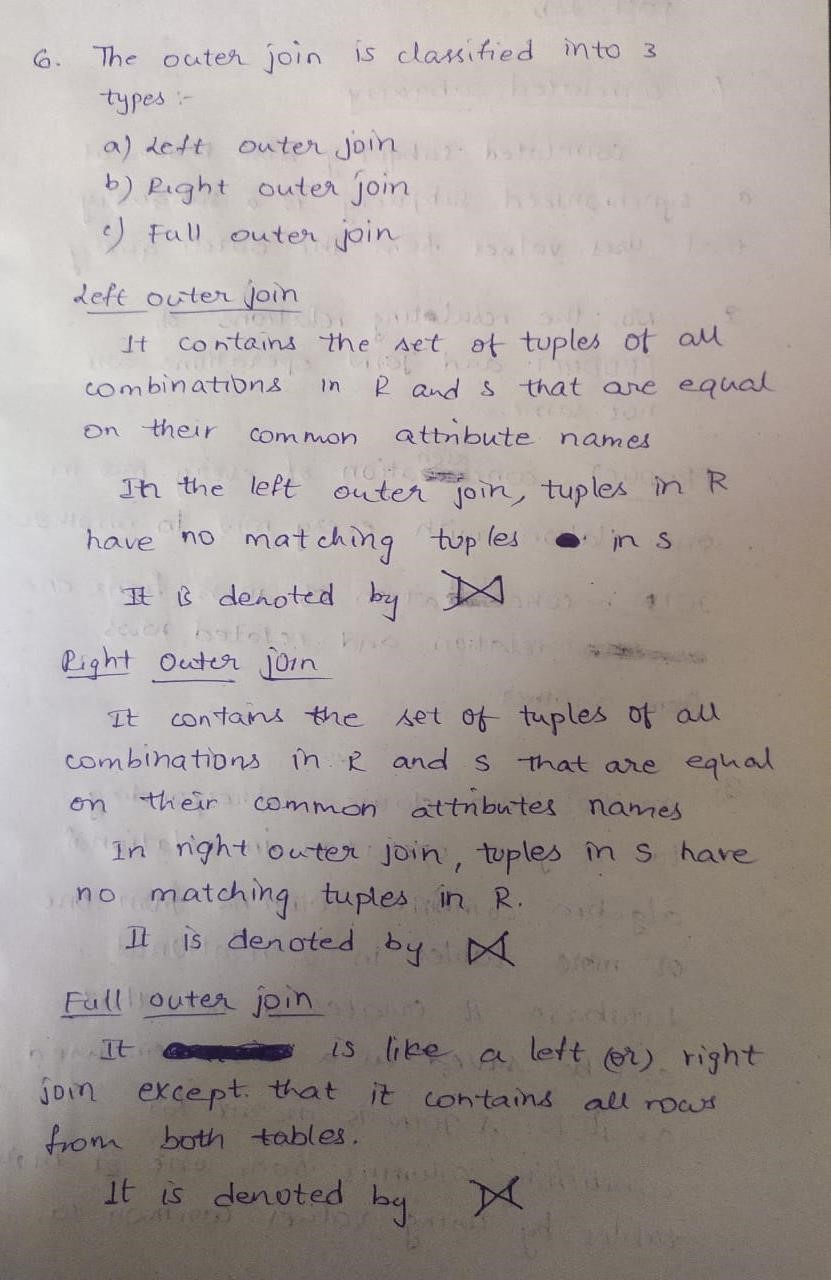 6. The outer join is classified into 3
types :-
a) Left outer join
b) Right outer join
c) Full outer join
Left outer join
It contains the set of tuples of all
combinations in R and S that are equal
on their common attribute names
In the left outer join, tuples in R
have no matching tuples in S
It is denoted by ⟕
Right outer join
It contains the set of tuples of all
combinations in R and S that are equal
on their common attributes names
In right outer join, tuples in S have
no matching tuples in R.
It is denoted by ⋈
Full outer join
It is like a left (or) right
join except. that it contains all rows
from both tables.
It is denoted by ⟗